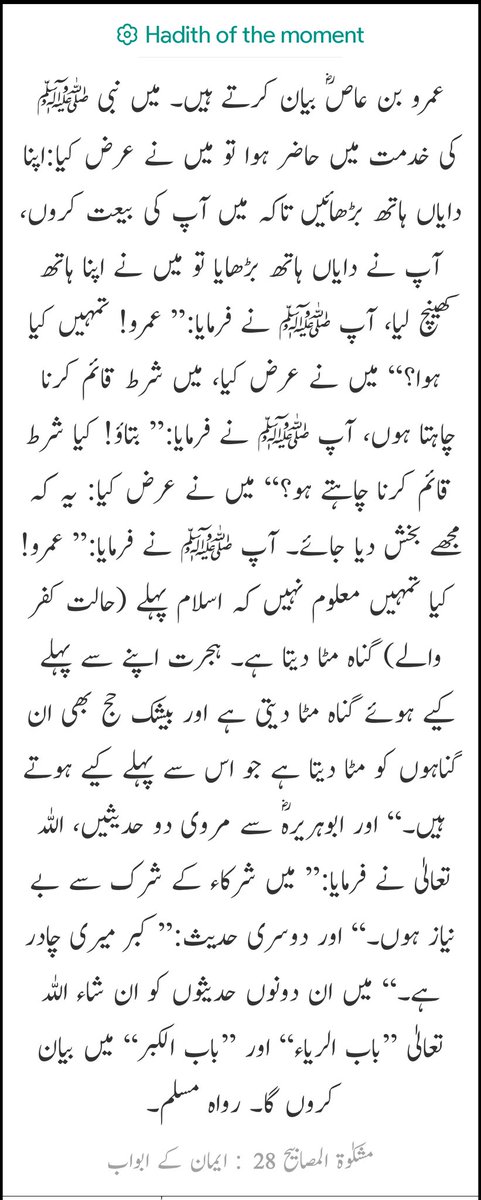 Hadith of the moment
عمرو بن عاصؓ بیان کرتے ہیں۔ میں نبی ﷺ
کی خدمت میں حاضر ہوا تو میں نے عرض کیا:اپنا
دایاں ہاتھ بڑھائیں تاکہ میں آپ کی بیعت کروں،
آپ نے دایاں ہاتھ بڑھایا تو میں نے اپنا ہاتھ
کھینچ لیا، آپ ﷺ نے فرمایا:’’ عمرو! تمہیں کیا
ہوا؟‘‘ میں نے عرض کیا، میں شرط قائم کرنا
چاہتا ہوں، آپ ﷺ نے فرمایا:’’ بتاؤ! کیا شرط
قائم کرنا چاہتے ہو؟‘‘ میں نے عرض کیا: یہ کہ
مجھے بخش دیا جائے۔ آپ ﷺ نے فرمایا:’’ عمرو!
کیا تمہیں معلوم نہیں کہ اسلام پہلے (حالت کفر
والے) گناہ مٹا دیتا ہے۔ ہجرت اپنے سے پہلے
کیے ہوئے گناہ مٹا دیتی ہے اور بیشک حج بھی ان
گناہوں کو مٹا دیتا ہے جو اس سے پہلے کیے ہوتے
ہیں۔‘‘ اور ابوہریرہؓ سے مروی دو حدیثیں، اللہ
تعالیٰ نے فرمایا:’’ میں شرکاء کے شرک سے بے
نیاز ہوں۔‘‘ اور دوسری حدیث:’’ کبر میری چادر
ہے۔‘‘ میں ان دونوں حدیثوں کو ان شاء اللہ
تعالیٰ ’’باب الریاء‘‘ اور ’’باب الکبر‘‘ میں بیان
کروں گا۔ رواہ مسلم۔
مشکوٰۃ المصابیح 28 : ایمان کے ابواب